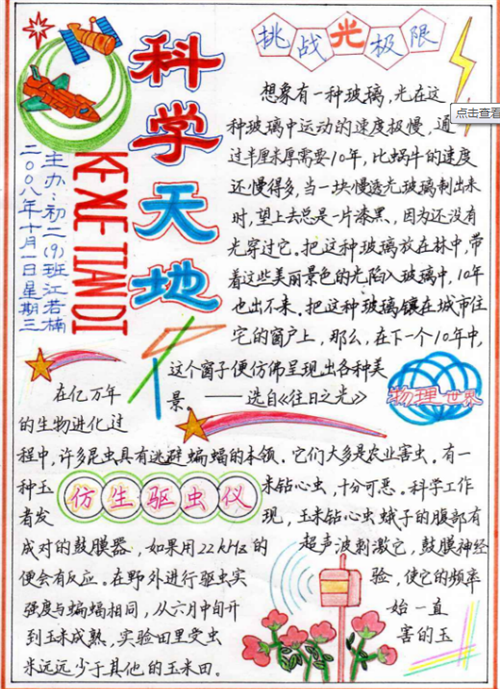 科学天地
KE XUE TIAN DI
主办:初二(9)班江若楠
二〇〇八年十月一日星期三
挑战光极限
想象有一种玻璃,光在这
点击查看
种玻璃中运动的速度极慢,通
过半厘米厚需要10年,比蜗牛的速度
还慢得多,当一块慢透光玻璃制出来
时,望上去总是一片漆黑,因为还没有
光穿过它。把这种玻璃放在林中,带
着这些美丽景色的光陷入玻璃中,10年
也出不来。把这种玻璃镶在城市住
宅的窗户上,那么,在下一个10年中,
这个窗子便仿佛呈现出各种美
景 ——选自《往日之光》
物理世界
在亿万年
的生物进化过
程中,许多昆虫具有逃避蝙蝠的本领。它们大多是农业害虫,有一
种玉米钻心虫,十分可恶。科学工作
仿生驱虫仪
者发现,玉米钻心虫蛾子的腹部有
成对的鼓膜器,如果用22kHz的超声波刺激它,鼓膜神经
便会有反应。在野外进行驱虫实验,使它的频率
强度与蝙蝠相同,从六月中旬开始一直
到玉米成熟,实验田里受虫害的玉
米远远少于其他的玉米田。